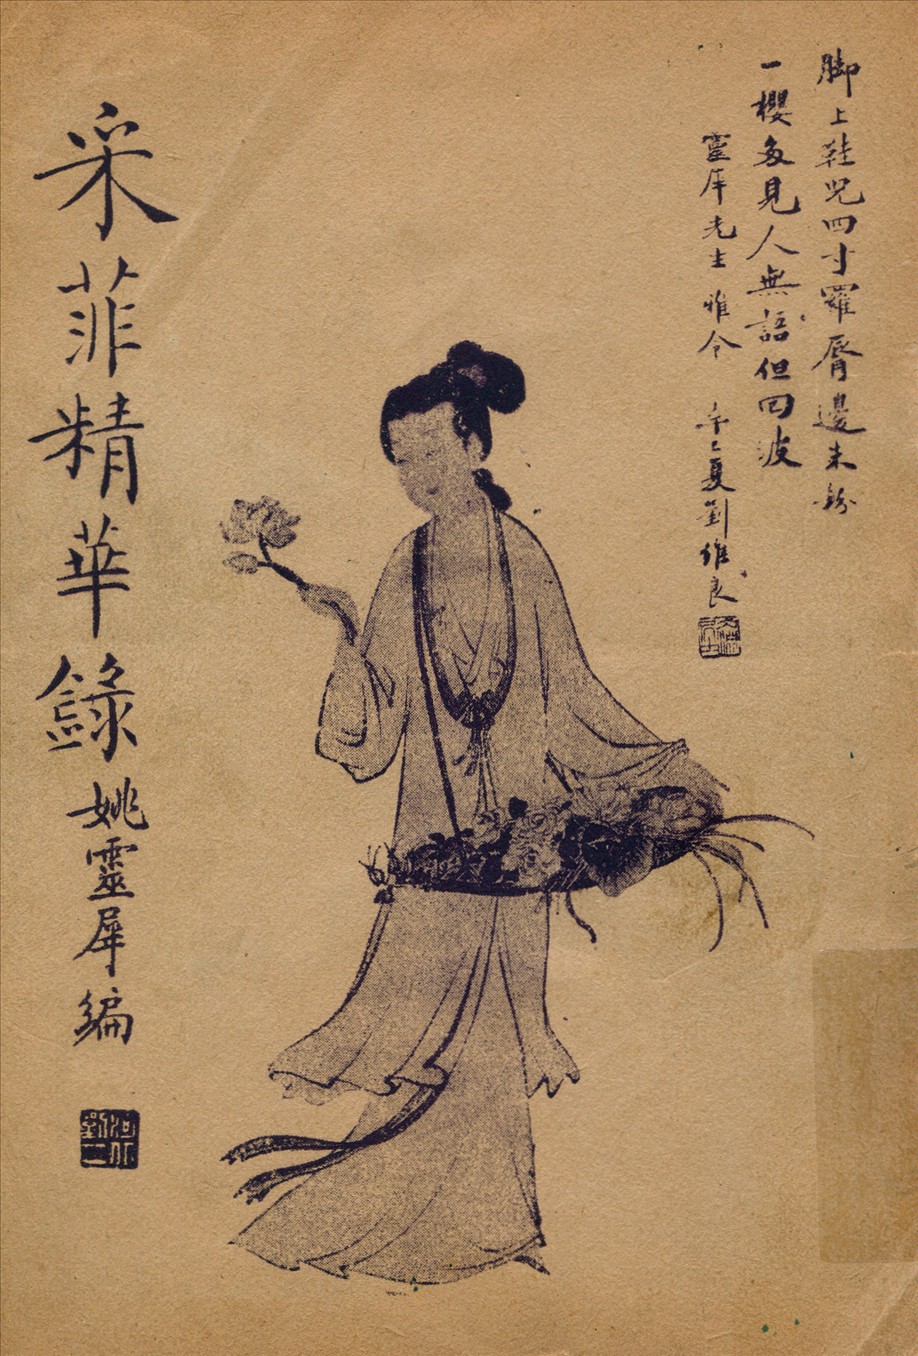 脚上鞋兒四寸羅脣邊朱粉
一櫻多見人無語但回波
靈犀先生雅令 辛巳夏劉維良
采菲精華錄
姚靈犀編